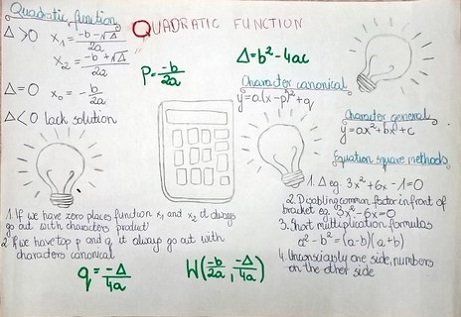 Quadratic function
QUADRATIC FUNCTION
Δ>0 x₁ = -b-√Δ/2a
x₂ = -b+√Δ/2a
Δ=0 x₀ = -b/2a
Δ<0 lack solution
p = -b/2a
Δ=b²-4ac
Character canonical
y=a(x-p)²+q
Character general
y=ax²+bx+c
Equation square methods
1. Δ eg. 3x²+6x-1=0
2. Disabling common factor in front of
bracket eg. 3x²-6x=0
3. Short multiplication formulas
a²-b²=(a-b)(a+b)
4. one side, numbers
on the other side
1. If we have zero places function x₁ and x₂ it always
go out with characters product
2. If we have top p and q it always go out with
characters canonical
q = -Δ/4a
W(-b/2a, -Δ/4a)